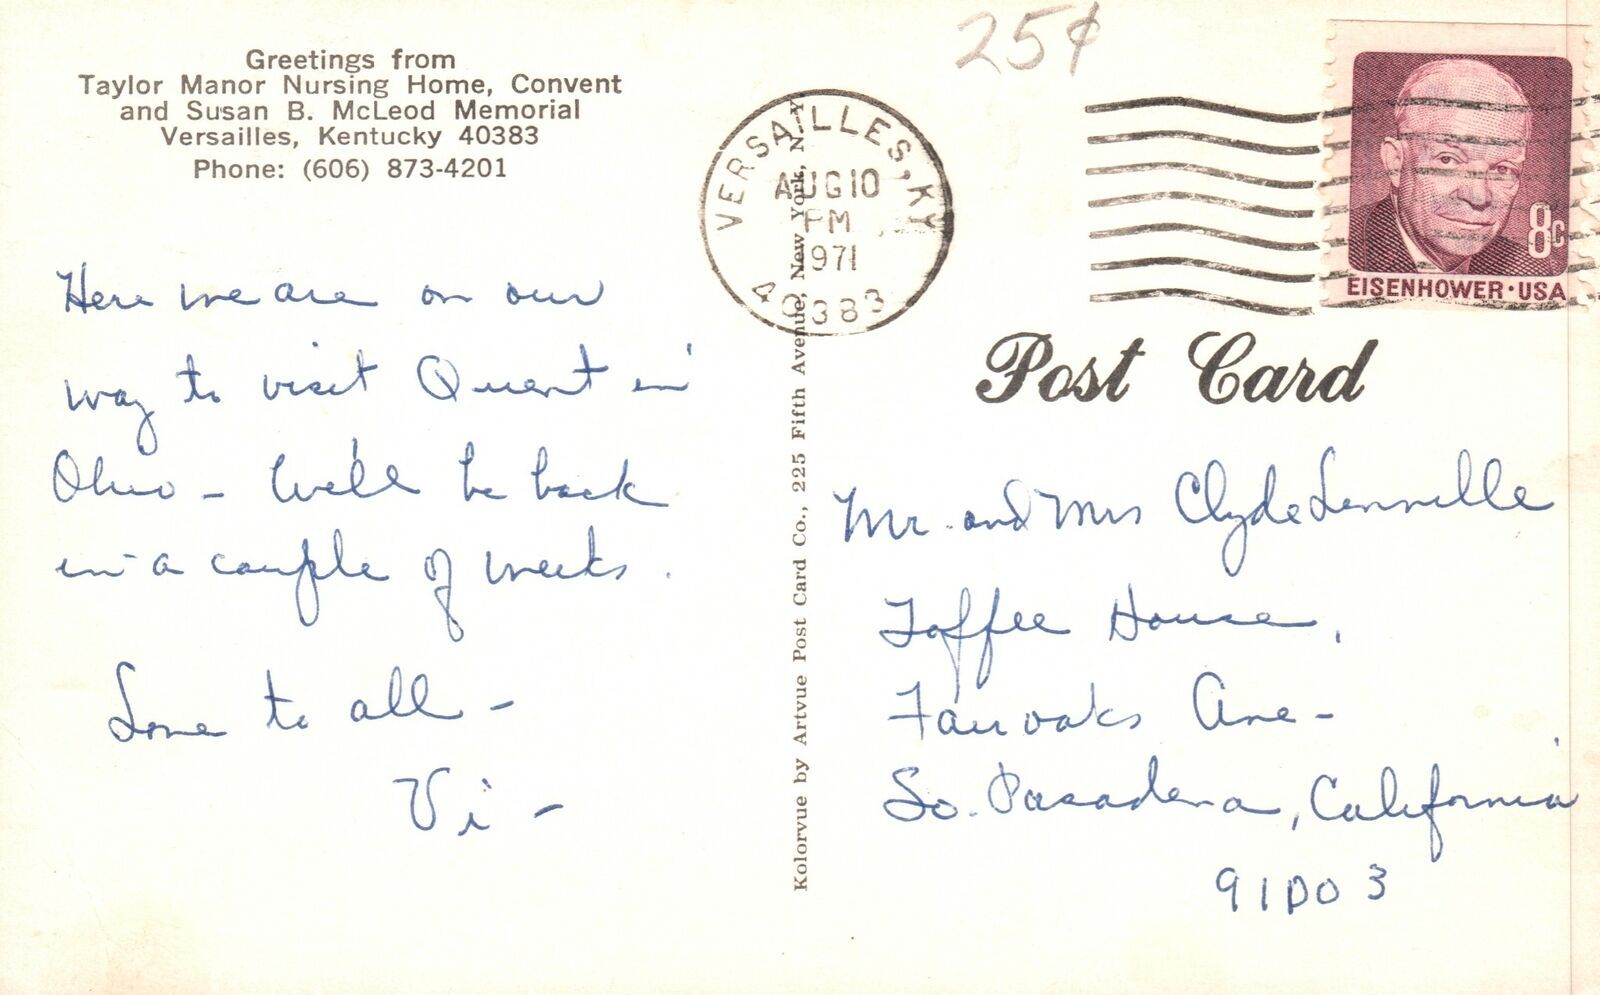 Greetings from
Taylor Manor Nursing Home, Convent
and Susan B. McLeod Memorial
Versailles, Kentucky 40383
Phone: (606) 873-4201
Here we are on our
way to visit Quent in
Ohio - We'll be back
in a couple of weeks.
Love to all -
Vi -
Kolorvue by Artvue Post Card Co., 225 Fifth Avenue, New York, N. Y
25¢
VERSAILLES, KY
AUG 10
PM
1971
40383
8c
EISENHOWER·USA
Post Card
Mr. and Mrs Clyde
Toffee House,
Fairoaks Ave-
So. Pasadena, California
91003